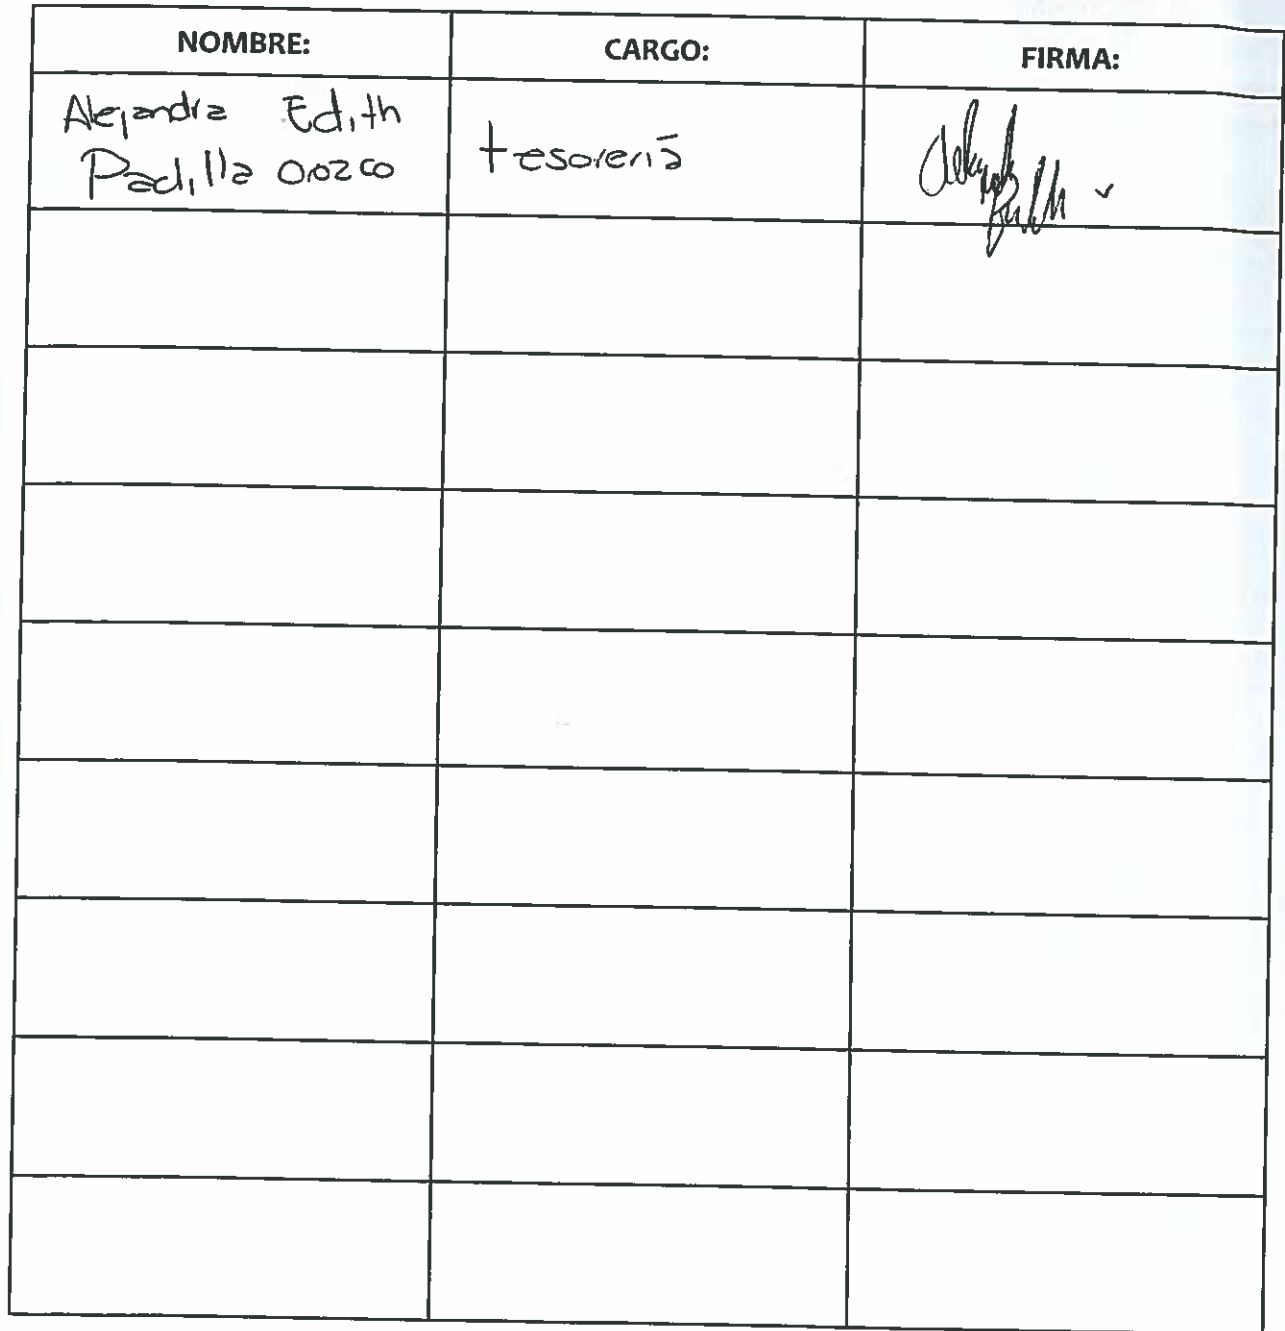 NOMBRE: CARGO: FIRMA:
Alejandra Edith
Padilla Orozco
tesorería